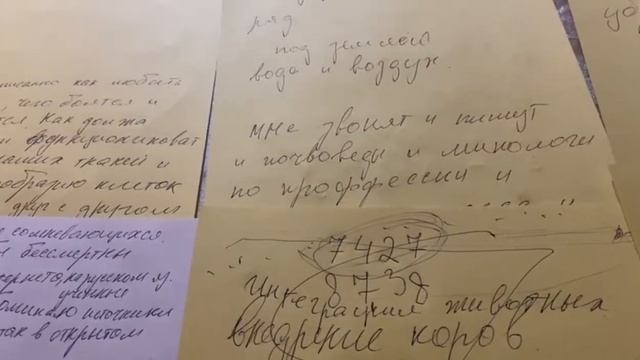 ряд
под землёй
вода и воздух.
мне звонят и пишут
и почвоведы и микологи
по профессии и
7427
8738
интеграция животных
внедрение коров
как любовь
, чего боятся и
Как должа
функциониковат
наших тканей и
клеток
друг с другом
сомневающихся.
бессмертны
ученые
источники
так в открытом
уд